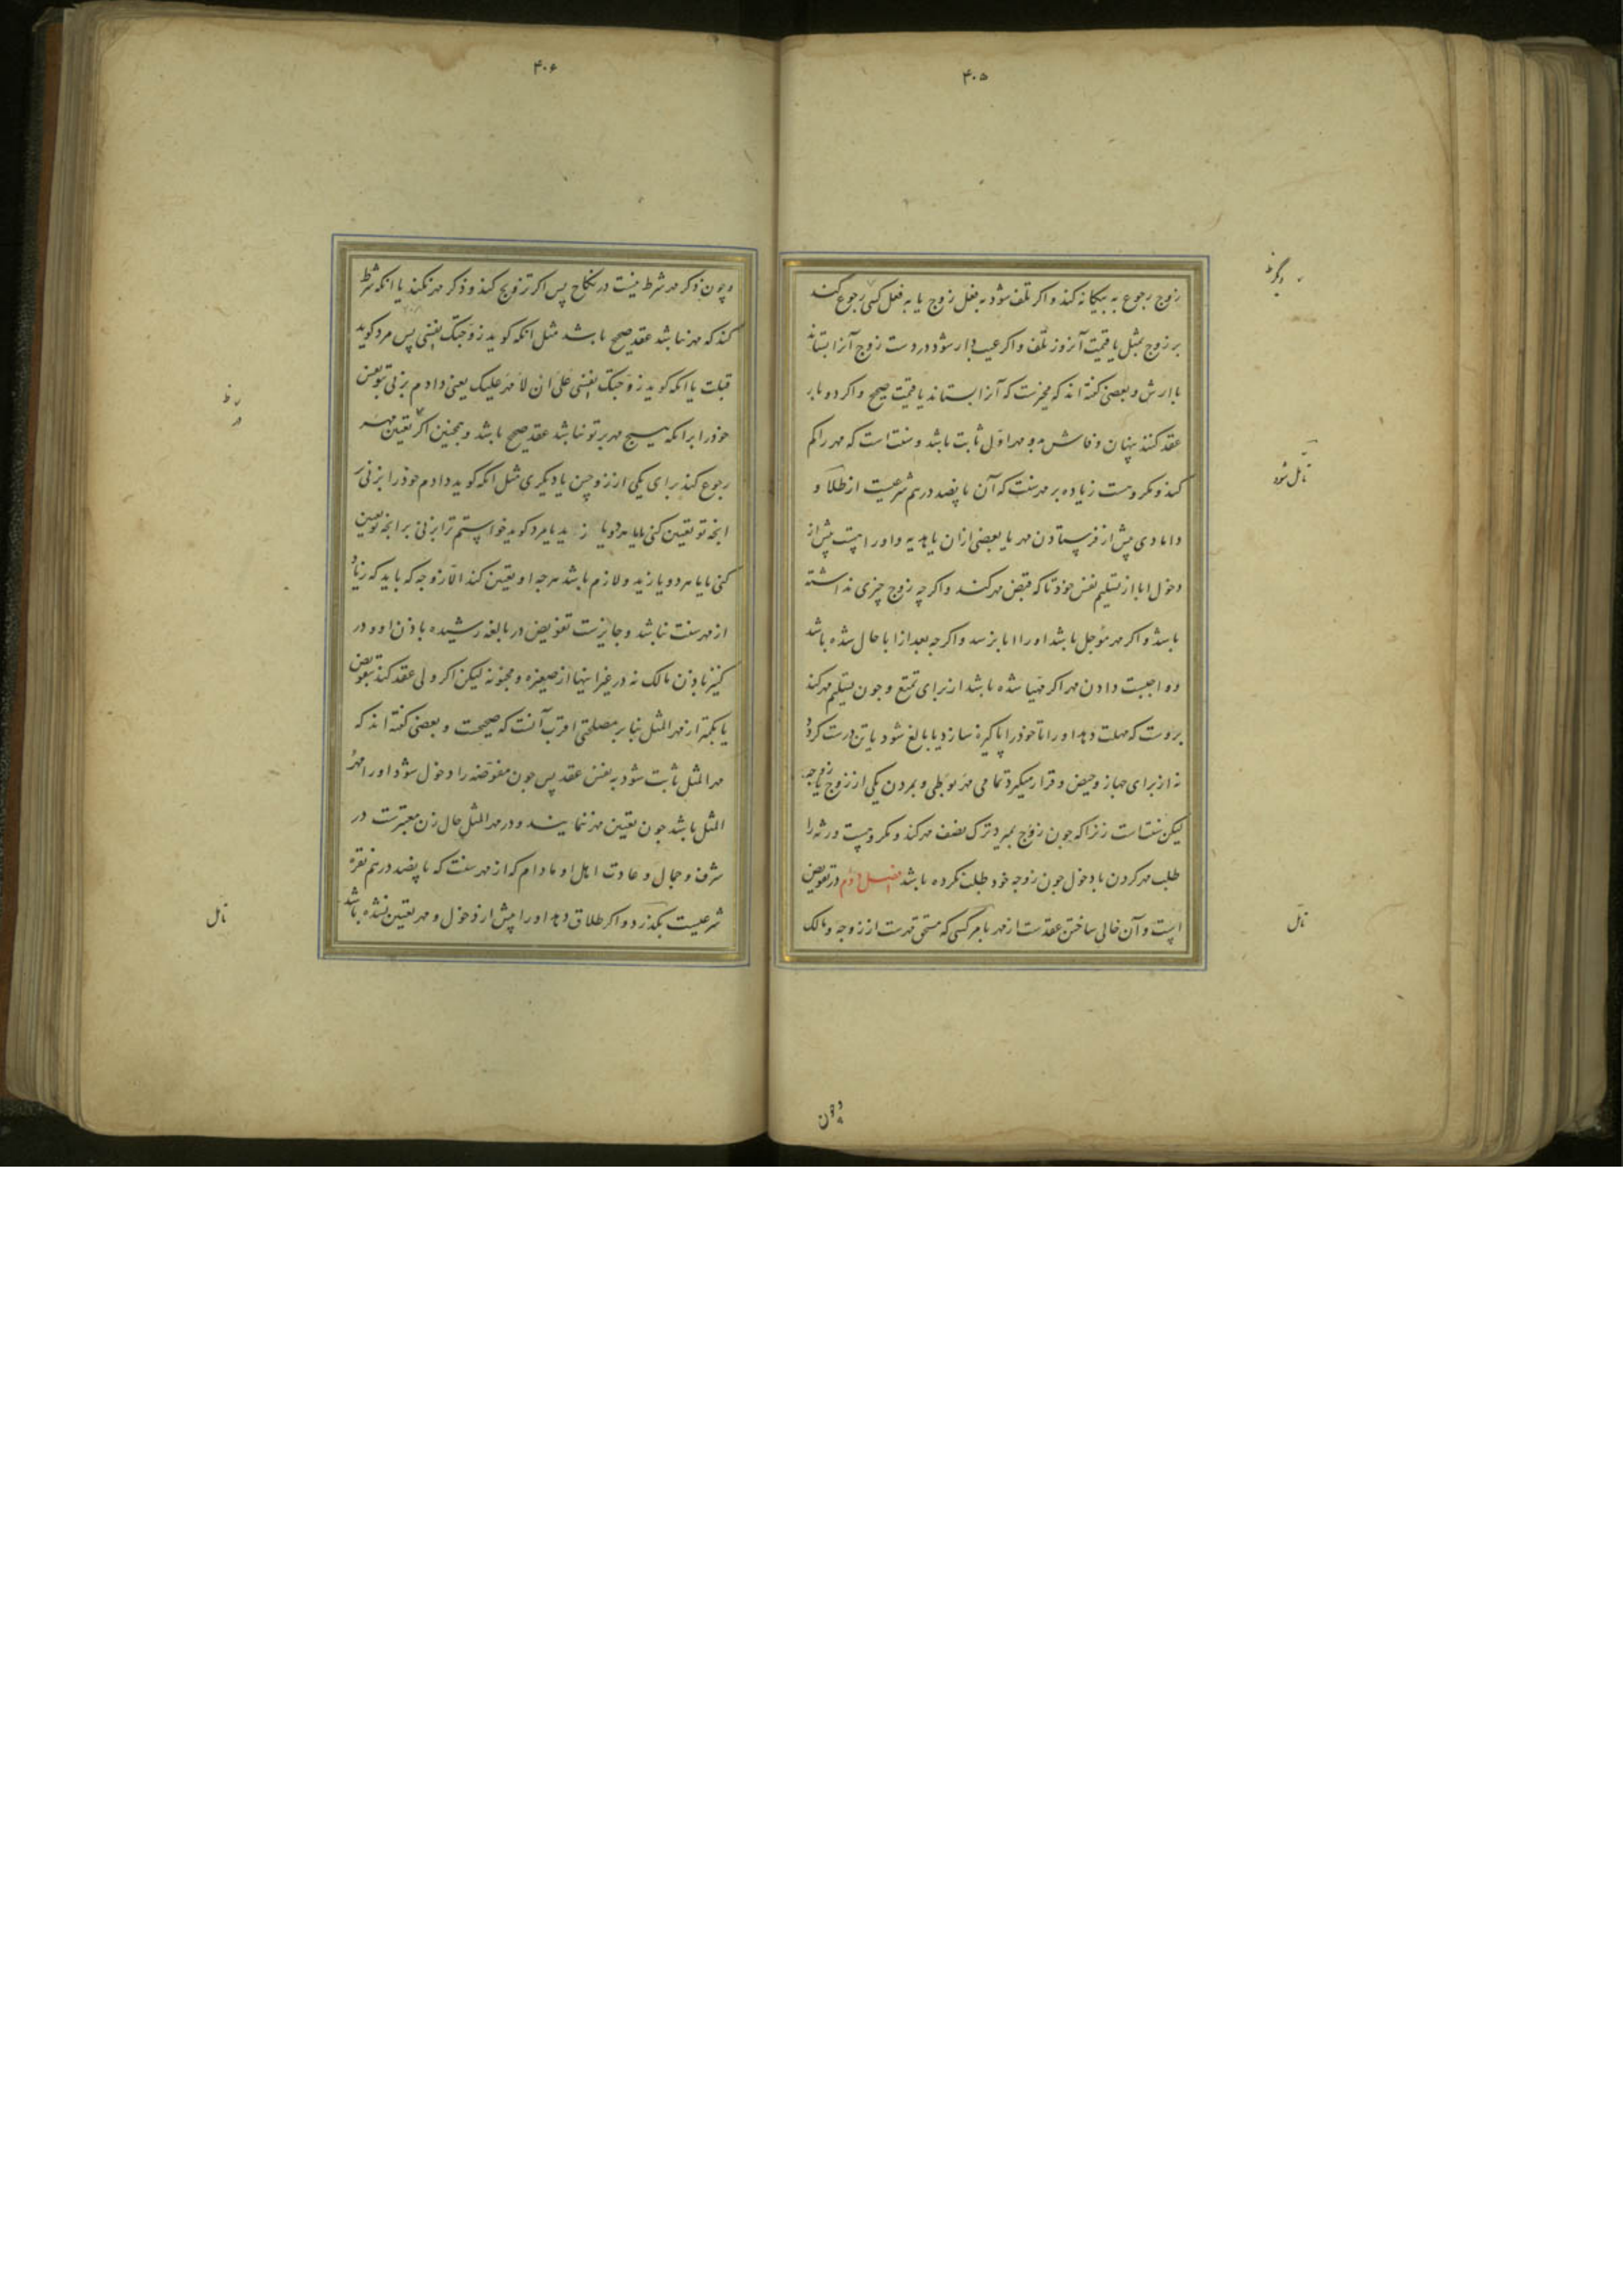 ۴۰۵
زوج رجوع به بیکانه کند و اکر تلف شود به فعل زوج یا به فعل کسی رجوع کند
بر زوج بمثل یا قیمت آنروز تلف و اکر عیب دار شود در دست زوج آنرا بستاند
با ارش و بعضی کفته اند که مخیرست که آنرا بستاند یا قیمت صحیح و اکر دو بار
عقد کنند پنهان و فاش مهر اول ثابت باشد و سنت است که مهر را کم
کند و مکروهست زیاده بر مهر سنت که آن پانصد درهم شرعیست از طلا و
دامادی پیش از فرستادن مهر یا بعضی ازان یا هدیه و او راست پیش از
دخول ابا از تسلیم نفس خود تا که قبض مهر کند و اکر چه زوج چیزی نداشته
باشد و اکر مهر مؤجل باشد او را ابا نرسد و اکرچه بعد از ابا حال شده باشد
و واجبست دادن مهر اکر مهیا شده باشد از برای تمتع و چون تسلیم مهر کند
بروست که مهلت دهد او را تا خود را پاکیزه سازد یا بالغ شود یا تن درست کردد
نه از برای جهاز و حیض و قرار میکیرد تمامی مهر بوطی و بمردن یکی از زوج یا زوجه
لیکن سنت است زنرا که چون زوج بمیرد ترک نصف مهر کند و مکروهست ورثه را
طلب مهر کردن با دخول چون زوجه خود طلب نکرده باشد فصل دوم در تفویض
است و آن خالی ساختن عقدست از مهر بامر کسی که مستحق مهرست از زوجه و مالک
تأمل شود
تأمل
و چون
۴۰۶
و چون ذکر مهر شرط نیست در نکاح پس اکر تزویج کند و ذکر مهر نکند یا انکه شرط
کند که مهر نباشد عقد صحیح باشد مثل انکه کوید زوجتک نفسی پس مرد کوید
قبلت یا انکه کوید زوجتک نفسی علی ان لا مهر علیک یعنی دادم بزنی بتو نفس
خود را بر انکه هیچ مهر بر تو نباشد عقد صحیح باشد و همچنین اکر تعیین مهر
رجوع کند برای یکی از زوجین یا دیکری مثل انکه کوید دادم خود را بزنی
انچه تو تعیین کنی یا هردو یا زید یا مرد کوید خواستم ترا بزنی بر انچه تو تعیین
کنی یا ما هردو یا زید و لازم باشد هرچه او تعیین کند الا زوجه که باید که زیاد
از مهر سنت نباشد و جایزست تفویض در بالغه رشیده باذن او و در
کنیز باذن مالک نه در غیر اینها از صغیره و مجنونه لیکن اکر ولی عقد کند بتفویض
یا بکمتر از مهر المثل بنابر مصلحتی اقرب آنست که صحیحست و بعضی کفته اند که
مهر المثل ثابت شود به نفس عقد پس چون مفوضه را دخول شود او را مهر
المثل باشد چون تعیین مهر ننمایند و در مهر المثل حال زن معتبرست در
شرف و جمال و عادت اهل او مادام که از مهر سنت که پانصد درهم نقره
شرعیست بکذرد و اکر طلاق دهد او را پیش از دخول و مهر تعیین نشده باشد
تأمل